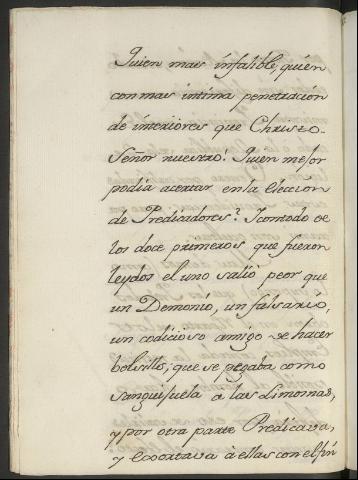 Quien mas infalible, quien
con mas intima penetracion
de interiores que Christo
Señor nuestro? Quien mejor
podia acertar en la eleccion
de Predicadores? Y con todo de
los doce primeros que fueron
leydos el uno salió peor que
un Demonio, un falsario,
un codicioso amigo de hacer
bolsillo, que se pegaba como
sanguijuela a las Limosnas,
y por otra parte Predicava,
y exortava à ellas con el fin